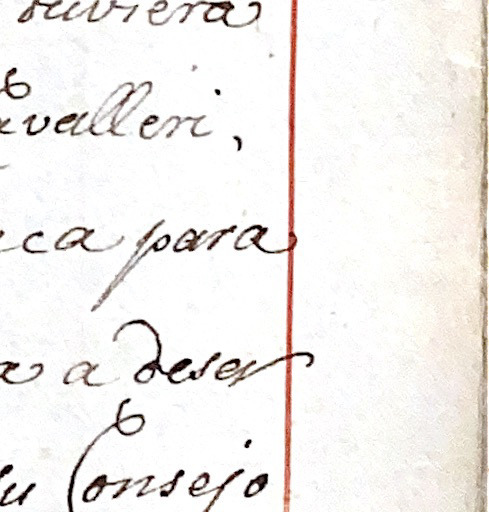 tuviera
avalleri,
ca para
a a deser
su Consejo